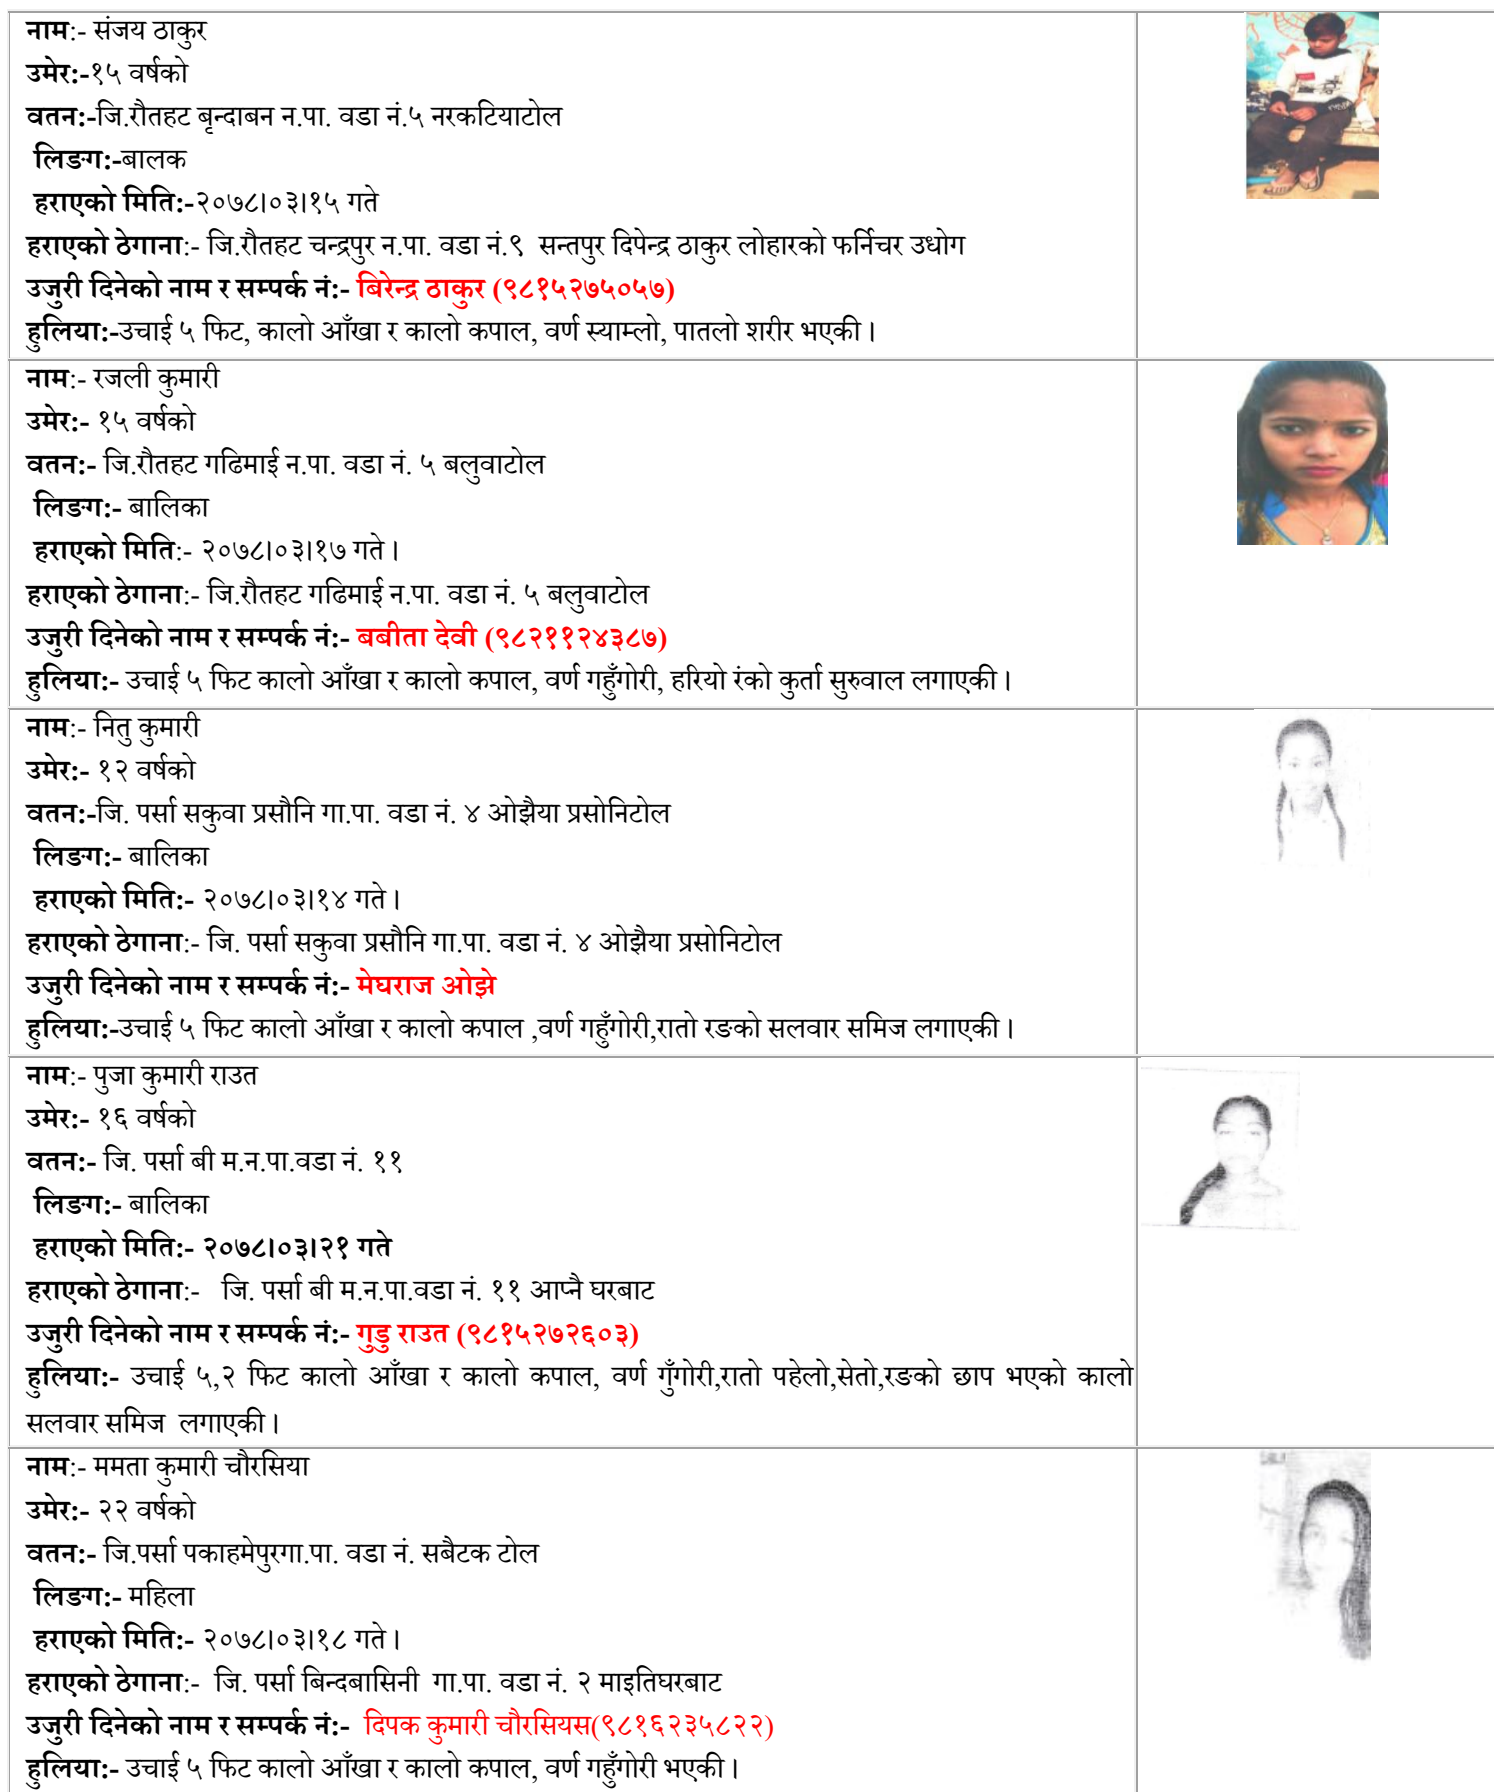 नाम:- संजय ठाकुर
उमेर:-१५ वर्षको
वतन:-जि.रौतहट बृन्दाबन न.पा. वडा नं.५ नरकटियाटोल
लिङग:-बालक
हराएको मिति:-२०७८।०३।१५ गते
हराएको ठेगाना:- जि.रौतहट चन्द्रपुर न.पा. वडा नं.९ सन्तपुर दिपेन्द्र ठाकुर लोहारको फर्निचर उधोग
उजुरी दिनेको नाम र सम्पर्क नं:- बिरेन्द्र ठाकुर (९८१५२७५०५७)
हुलिया:-उचाई ५ फिट, कालो आँखा र कालो कपाल, वर्ण स्याम्लो, पातलो शरीर भएकी।
नाम:- रजली कुमारी
उमेर:- १५ वर्षको
वतन:- जि.रौतहट गढिमाई न.पा. वडा नं. ५ बलुवाटोल
लिङग:- बालिका
हराएको मिति:- २०७८।०३।१७ गते।
हराएको ठेगाना:- जि.रौतहट गढिमाई न.पा. वडा नं. ५ बलुवाटोल
उजुरी दिनेको नाम र सम्पर्क नं:- बबीता देवी (९८२११२४३८७)
हुलिया:- उचाई ५ फिट कालो आँखा र कालो कपाल, वर्ण गहुँगोरी, हरियो रंको कुर्ता सुरुवाल लगाएकी।
नाम:- नितु कुमारी
उमेर:- १२ वर्षको
वतन:-जि. पर्सा सकुवा प्रसौनि गा.पा. वडा नं. ४ ओझैया प्रसोनिटोल
लिङग:- बालिका
हराएको मिति:- २०७८।०३।१४ गते।
हराएको ठेगाना:- जि. पर्सा सकुवा प्रसौनि गा.पा. वडा नं. ४ ओझैया प्रसोनिटोल
उजुरी दिनेको नाम र सम्पर्क नं:- मेघराज ओझे
हुलिया:-उचाई ५ फिट कालो आँखा र कालो कपाल ,वर्ण गहुँगोरी,रातो रङको सलवार समिज लगाएकी।
नाम:- पुजा कुमारी राउत
उमेर:- १६ वर्षको
वतन:- जि. पर्सा बी म.न.पा.वडा नं. ११
लिङग:- बालिका
हराएको मिति:- २०७८।०३।२१ गते
हराएको ठेगाना:- जि. पर्सा बी म.न.पा.वडा नं. ११ आप्नै घरबाट
उजुरी दिनेको नाम र सम्पर्क नं:- गुडु राउत (९८१५२७२६०३)
हुलिया:- उचाई ५,२ फिट कालो आँखा र कालो कपाल, वर्ण गुँगोरी,रातो पहेलो,सेतो,रङको छाप भएको कालो
सलवार समिज लगाएकी।
नाम:- ममता कुमारी चौरसिया
उमेर:- २२ वर्षको
वतन:- जि.पर्सा पकाहमेपुरगा.पा. वडा नं. सबैटक टोल
लिङग:- महिला
हराएको मिति:- २०७८।०३।१८ गते।
हराएको ठेगाना:- जि. पर्सा बिन्दबासिनी गा.पा. वडा नं. २ माइतिघरबाट
उजुरी दिनेको नाम र सम्पर्क नं:- दिपक कुमारी चौरसियस(९८१६२३५८२२)
हुलिया:- उचाई ५ फिट कालो आँखा र कालो कपाल, वर्ण गहुँगोरी भएकी।